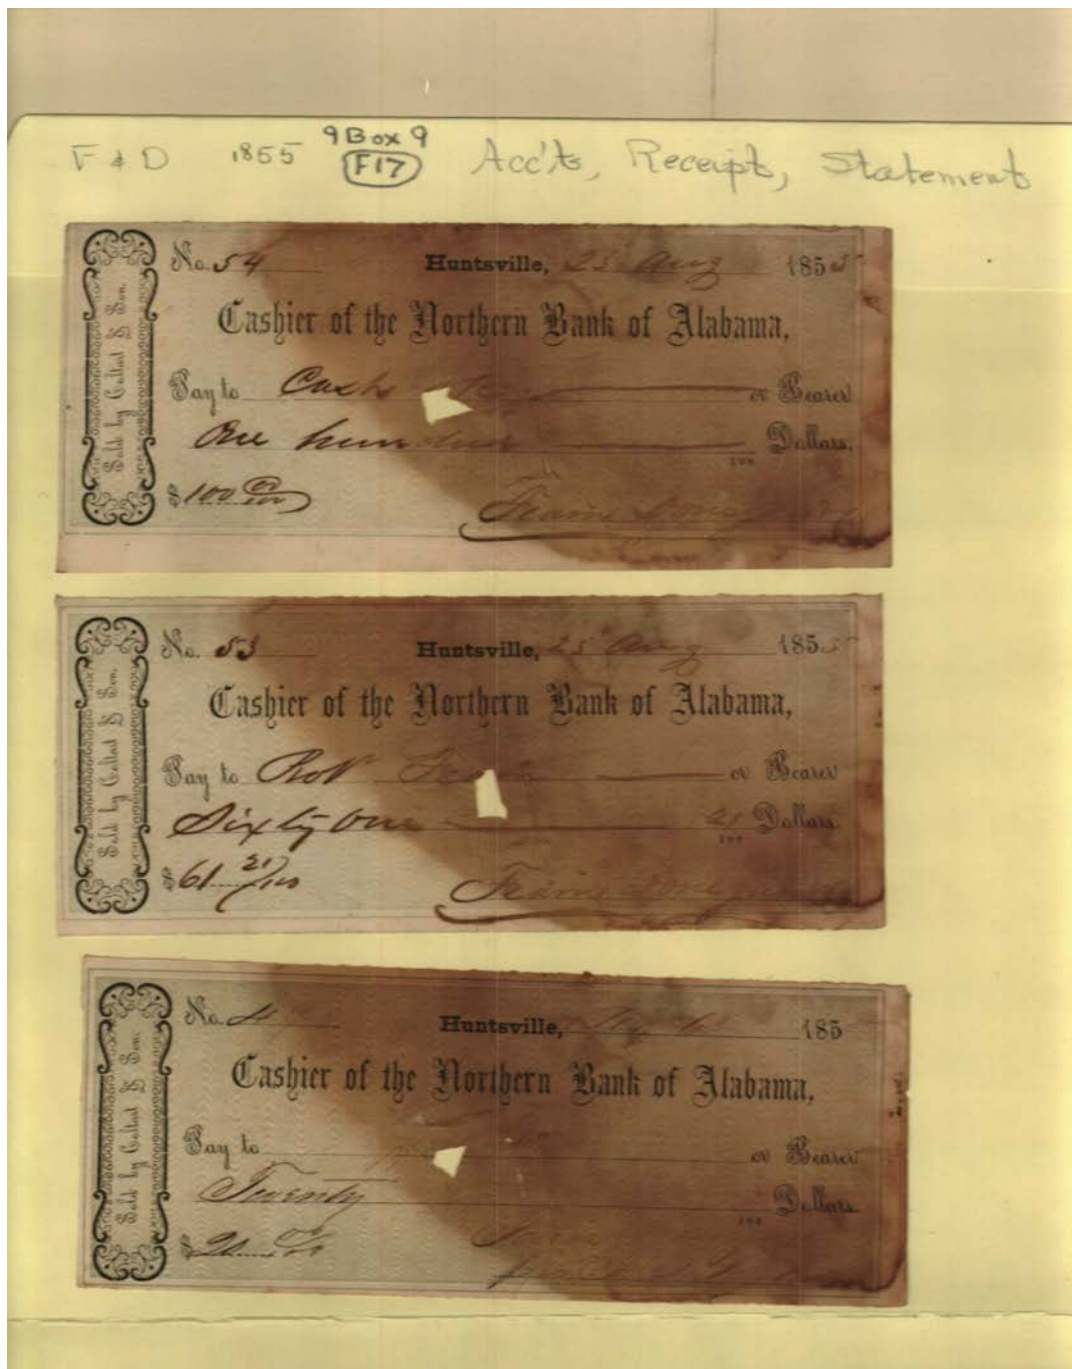 F & D 1855 9 Box 9 Acc'ts, Receipt, Statement
F17
No. 54 Huntsville, 25 Aug 1855
Cashier of the Northern Bank of Alabama,
Pay to Cash or Bearer
One hundred Dollars.
100
$100 00/100
Sold by Coltart & Son.
No. 53 Huntsville, 25 Aug 1855
Cashier of the Northern Bank of Alabama,
Pay to Robt or Bearer
Sixty One 21 Dollars.
100
$61 21/100
Sold by Coltart & Son.
No. Huntsville, 185
Cashier of the Northern Bank of Alabama,
Pay to or Bearer
Twenty Dollars.
100
$20
Sold by Coltart & Son.